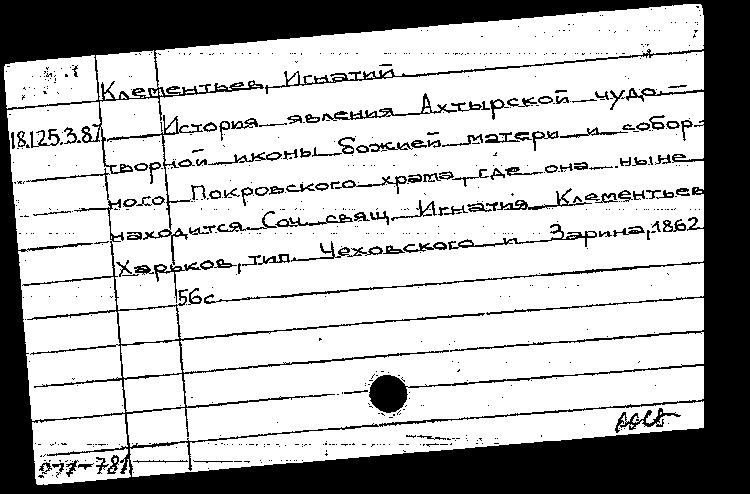 Клементьев, Игнатий.
18.125.3.87
История явления Ахтырской чудо-
творной иконы Божией матери и собор-
ного Покровского храма, где она ныне
находится. Соч. свящ. Игнатия Клементьев
Харьков, тип. Чеховского и Зарина, 1862
56с
977-781